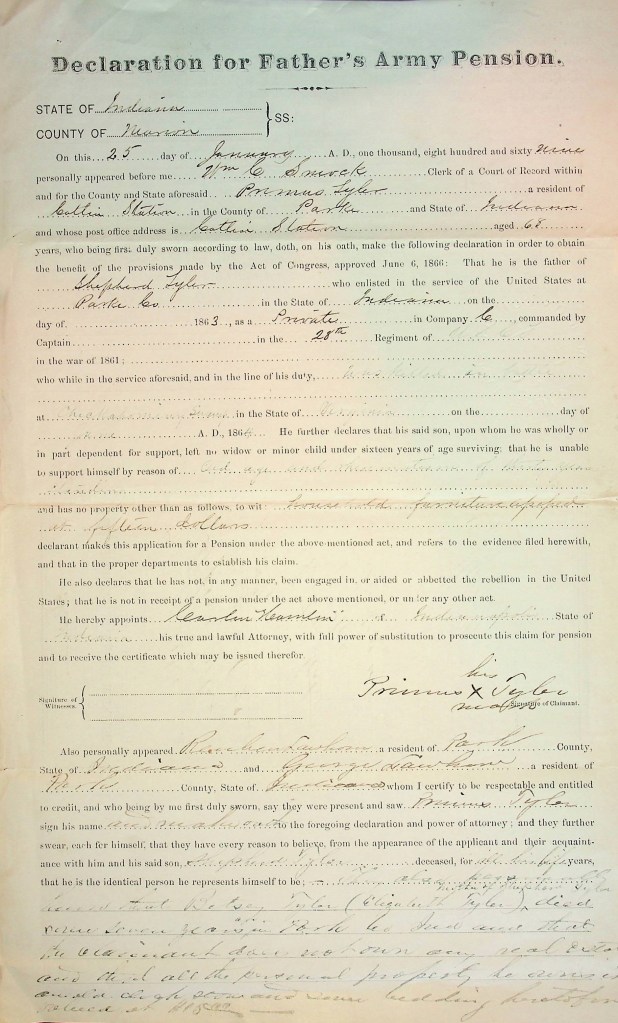 Declaration for Father's Army Pension.
STATE OF Indiana
COUNTY OF Marion } SS:
On this 25 day of January A. D., one thousand, eight hundred and sixty nine
personally appeared before me Wm C. Smock Clerk of a Court of Record within
and for the County and State aforesaid Primus Tyler a resident of
Catlin Station in the County of Parke and State of Indiana
and whose post office address is Catlin Station aged 68
years, who being first duly sworn according to law, doth, on his oath, make the following declaration in order to obtain
the benefit of the provisions made by the Act of Congress, approved June 6, 1866: That he is the father of
Shepherd Tyler who enlisted in the service of the United States at
Parke Co. in the State of Indiana on the
day of 1863, as a Private in Company C, commanded by
Captain in the 28th Regiment of
in the war of 1861;
who while in the service aforesaid, and in the line of his duty, was killed
at in the State of Virginia on the day of
A. D., 186 He further declares that his said son, upon whom he was wholly or
in part dependent for support, left no widow or minor child under sixteen years of age surviving; that he is unable
to support himself by reason of old age and
and has no property other than as follows, to wit: household furniture
at fifteen dollars
declarant makes this application for a Pension under the above-mentioned act, and refers to the evidence filed herewith,
and that in the proper departments to establish his claim.
He also declares that he has not, in any manner, been engaged in, or aided or abbetted the rebellion in the United
States; that he is not in receipt of a pension under the act above mentioned, or under any other act.
He hereby appoints "Hamlin" of Indianapolis State of
Indiana his true and lawful Attorney, with full power of substitution to prosecute this claim for pension
and to receive the certificate which may be issued therefor.
his
Primus X Tyler
mark
Signature of Witnesses.
Signature of Claimant.
Also personally appeared Reuben a resident of Park County,
State of Indiana and George a resident of
Park County, State of Indiana whom I certify to be respectable and entitled
to credit, and who being by me first duly sworn, say they were present and saw Primus Tyler
sign his name to the foregoing declaration and power of attorney; and they further
swear, each for himself, that they have every reason to believe, from the appearance of the applicant and their acquaint-
ance with him and his said son, Shepherd Tyler deceased, for years,
that he is the identical person he represents himself to be;
mother of Shepherd Tyler
that Betsey Tyler (Elizabeth Tyler), died
seven years ago in Park Co Ind and that
the claimant does not own any real estate
and that all the personal property he owns is
an old stove and some bedding